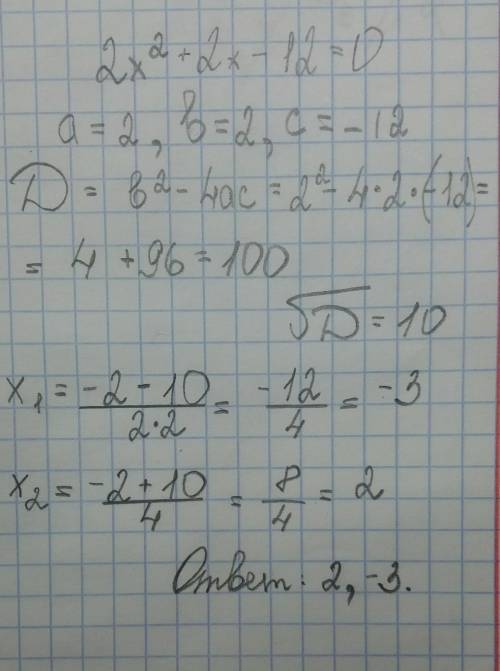 2x² + 2x - 12 = 0
a = 2, в = 2, c = -12
D = в² - 4ac = 2² - 4·2·(-12) =
= 4 + 96 = 100
√D = 10
x₁ = (-2 - 10)/(2·2) = -12/4 = -3
x₂ = (-2 + 10)/4 = 8/4 = 2
Ответ: 2, -3.